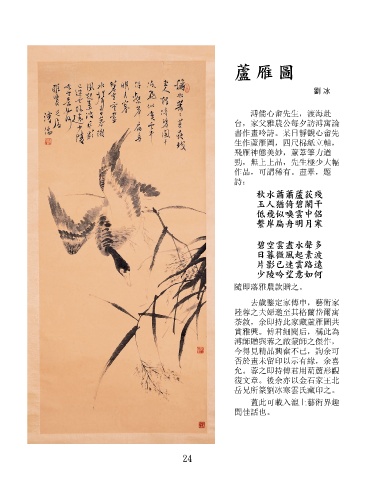 蘆雁圖
劉冰
溥儒心畬先生,渡海赴
台,家父雅農公每夕訪溥寓論
書作畫吟詩。某日靜觀心畬先
生作蘆雁圖,四尺棉紙立軸,
殘雁神態美妙,葭葦筆力遒
勁,無上上品,先生極少大幅
作品,可謂稀有。畫畢,題
詩:
秋水蕭蕭蘆荻殘
玉人猶倚碧闌干
低飛似喚雲中侶
繫岸扁舟明月寒
碧空雲盡水聲多
日暮微風起素波
片影已迷雲路遠
少陵吟望意如何
隨即落雅農款贈之。
去歲鑒定家傅申,藝術家
陸蓉之夫婦邀至其格蘭岱爾寓
茶敘,余即持此家藏蘆雁圖共
賞雅興。傅君細閱后,稱此為
溥師贈與蓉之啟蒙師之傑作,
今得見精品興奮不已,詢余可
否於畫末留印以示有緣,余喜
允。蓉之即持傅君用葫蘆形觀
復文章。後余亦以金石家王北
岳兄所篆劉冰寒雲氏藏印之。
蓋此可載入上藝術界趣
聞佳話也。
24